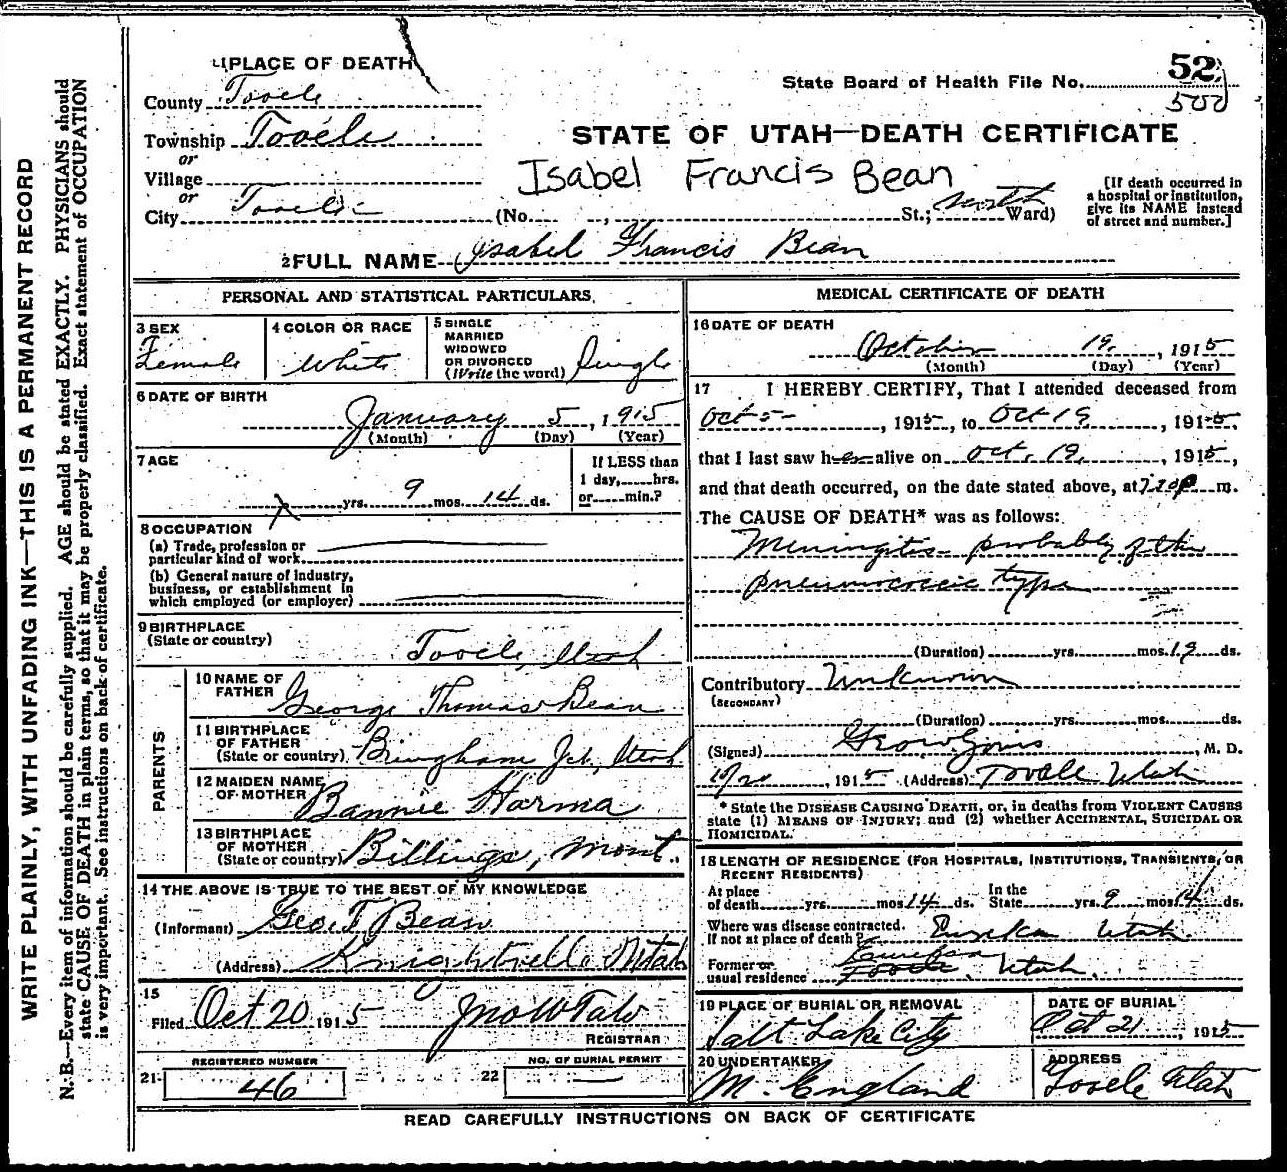 1 PLACE OF DEATH
State Board of Health File No. 52
500
County Tooele
Township Tooele
or
Village
or
City Tooele (No. , St.; North Ward)
STATE OF UTAH—DEATH CERTIFICATE
Isabel Francis Bean
[If death occurred in
a hospital or institution,
give its NAME instead
of street and number.]
2 FULL NAME Isabel Francis Bean
PERSONAL AND STATISTICAL PARTICULARS.
3 SEX
Female
4 COLOR OR RACE
White
5 SINGLE
MARRIED
WIDOWED
OR DIVORCED
(Write the word) Single
6 DATE OF BIRTH
January 5, 1915
(Month) (Day) (Year)
7 AGE
yrs. 9 mos. 14 ds.
If LESS than
1 day, hrs.
or min.?
8 OCCUPATION
(a) Trade, profession or
particular kind of work
(b) General nature of industry,
business, or establishment in
which employed (or employer)
9 BIRTHPLACE
(State or country)
Tooele, Utah
PARENTS
10 NAME OF
FATHER George Thomas Bean
11 BIRTHPLACE
OF FATHER
(State or country) Bingham Jct, Utah
12 MAIDEN NAME
OF MOTHER Bannie Harma
13 BIRTHPLACE
OF MOTHER
(State or country) Billings, Mont.
14 THE ABOVE IS TRUE TO THE BEST OF MY KNOWLEDGE
(Informant) Geo. T. Bean
(Address) Knightville Utah
15
Filed Oct 20 1915
REGISTRAR
REGISTERED NUMBER
21 46
NO. OF BURIAL PERMIT
22
MEDICAL CERTIFICATE OF DEATH
16 DATE OF DEATH
October 19, 1915
(Month) (Day) (Year)
17 I HEREBY CERTIFY, That I attended deceased from
Oct 5, 1915, to Oct 19, 1915,
that I last saw her alive on Oct. 19, 1915,
and that death occurred, on the date stated above, at 720 P m.
The CAUSE OF DEATH* was as follows:
Meningitis probably of the
pneumococcic type
(Duration) yrs. mos. 19 ds.
Contributory Unknown
(SECONDARY)
(Duration) yrs. mos. ds.
(Signed) , M. D.
10/20, 1915 (Address) Tooele Utah
* State the DISEASE CAUSING DEATH, or, in deaths from VIOLENT CAUSES
state (1) MEANS OF INJURY; and (2) whether ACCIDENTAL, SUICIDAL OR
HOMICIDAL.
18 LENGTH OF RESIDENCE (FOR HOSPITALS, INSTITUTIONS, TRANSIENTS, OR
RECENT RESIDENTS)
At place
of death yrs. mos. 14 ds.
In the
State yrs. 9 mos. 14 ds.
Where was disease contracted.
If not at place of death? Eureka Utah
Former or
usual residence Eureka Tooele, Utah.
19 PLACE OF BURIAL OR REMOVAL
Salt Lake City
DATE OF BURIAL
Oct 21, 1915
20 UNDERTAKER
M. England
ADDRESS
Tooele Utah
READ CAREFULLY INSTRUCTIONS ON BACK OF CERTIFICATE
WRITE PLAINLY, WITH UNFADING INK—THIS IS A PERMANENT RECORD
N. B.—Every item of information should be carefully supplied. AGE should be stated EXACTLY. PHYSICIANS should
state CAUSE OF DEATH in plain terms, so that it may be properly classified. Exact statement of OCCUPATION
is very important. See instructions on back of certificate.